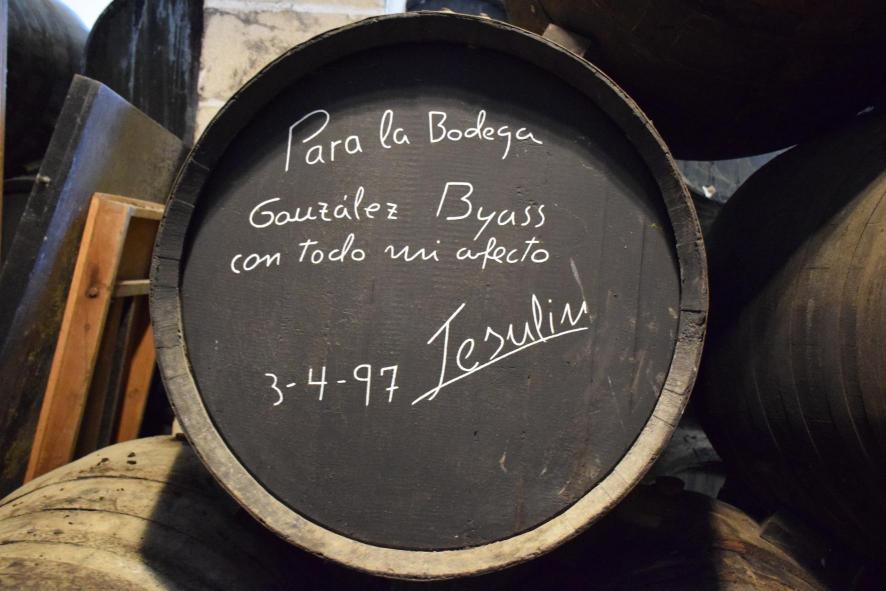 Para la Bodega
González Byass
con todo mi afecto
Jesulin
3-4-97